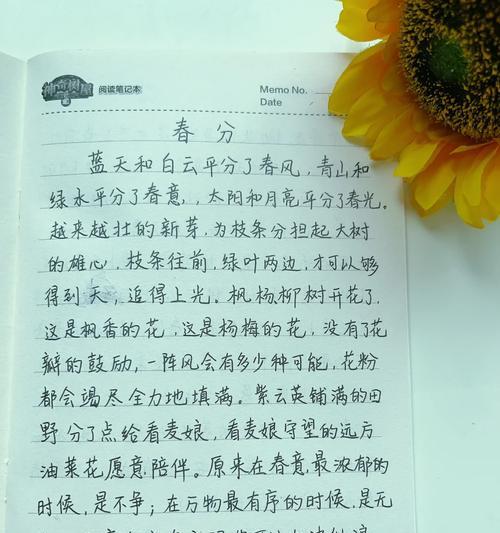 神奇树屋 阅读笔记本
Memo No.
Date
春分
蓝天和白云平分了春风，青山和
绿水平分了春意，太阳和月亮平分了春光。
越来越壮的新芽，为枝条分担起大树
的雄心，枝条往前，绿叶两边，才可以够
得到天，追得上光。枫杨柳树开花了，
这是枫香的花，这是杨梅的花，没有了花
瓣的鼓励，一阵风会有多少种可能，花粉
都会竭尽全力地填满。紫云英铺满的田
野分了点给看麦娘，看麦娘守望的远方
油菜花愿意陪伴。原来在春意最浓郁的
时候，是不争；在万物最有序的时候，是无